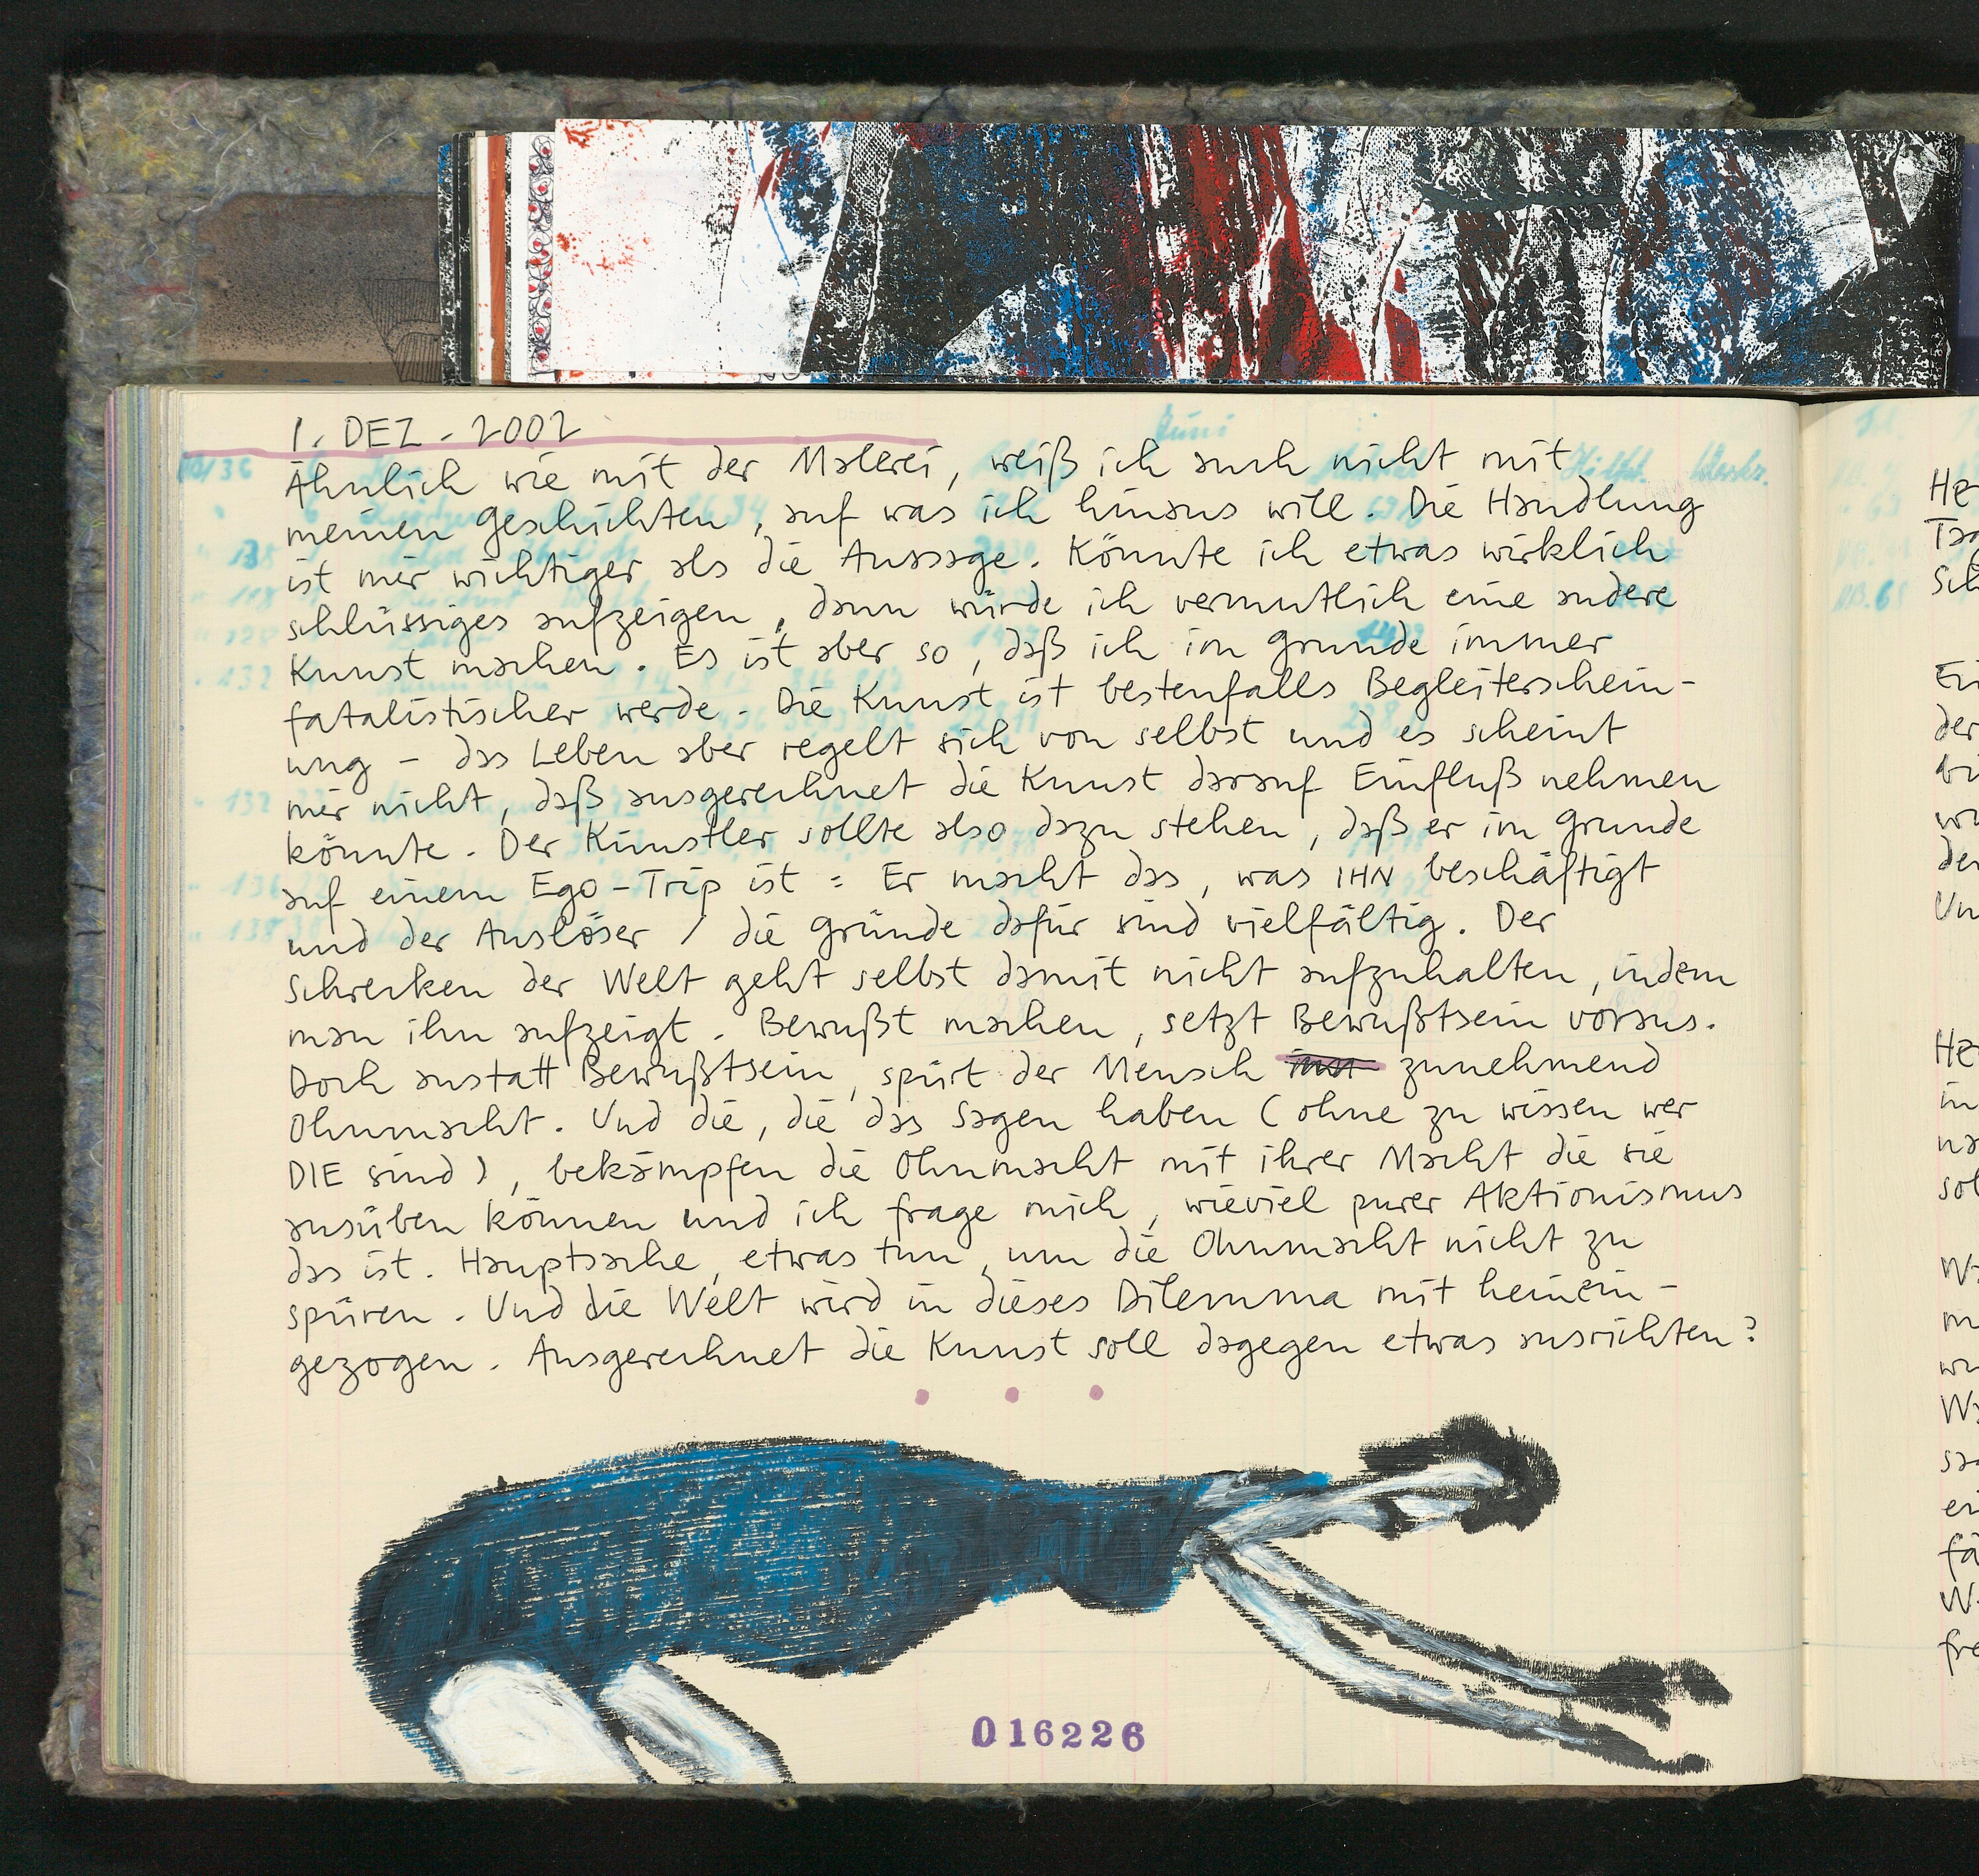 1. DEZ. 2002
Ähnlich wie mit der Malerei, weiß ich auch nicht mit
meinen Geschichten, auf was ich hinaus will. Die Handlung
ist mir wichtiger als die Aussage. Könnte ich etwas wirklich
schlüssiges aufzeigen, dann würde ich vermutlich eine andere
Kunst machen. Es ist aber so, daß ich im Grunde immer
fatalistischer werde. Die Kunst ist bestenfalls Begleiterschein-
ung - das Leben aber regelt sich von selbst und es scheint
mir nicht, daß ausgerechnet die Kunst darauf Einfluß nehmen
könnte. Der Künstler sollte also dazu stehen, daß er im Grunde
auf einem Ego-Trip ist: Er macht das, was IHN beschäftigt
und der Auslöser / die Gründe dafür sind vielfältig. Der
Schrecken der Welt geht selbst damit nicht aufzuhalten, indem
man ihn aufzeigt. Bewußt machen, setzt Bewußtsein voraus.
Doch anstatt Bewußtsein, spürt der Mensch zunehmend
Ohnmacht. Und die, die das Sagen haben (ohne zu wissen wer
DIE sind), bekämpfen die Ohnmacht mit ihrer Macht die sie
ausüben können und ich frage mich, wieviel purer Aktionismus
das ist. Hauptsache, etwas tun, um die Ohnmacht nicht zu
spüren. Und die Welt wird in dieses Dilemma mit heinein-
gezogen. Ausgerechnet die Kunst soll dagegen etwas ausrichten?
016226
Juni